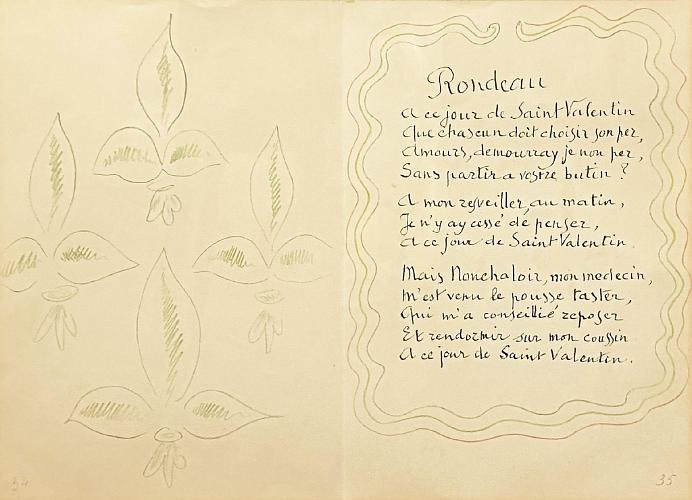 34
Rondeau
A ce jour de Saint Valentin
Que chascun doit choisir son per,
Amours, demourray je non per,
Sans partir a vostre butin ?
A mon resveiller, au matin,
Je n'y ay cessé de penser,
A ce jour de Saint Valentin.
Mais Nonchaloir, mon medecin,
M'est venu le pousse taster,
Qui m'a conseillié reposer
Et rendormir sur mon coussin
A ce jour de Saint Valentin.
35